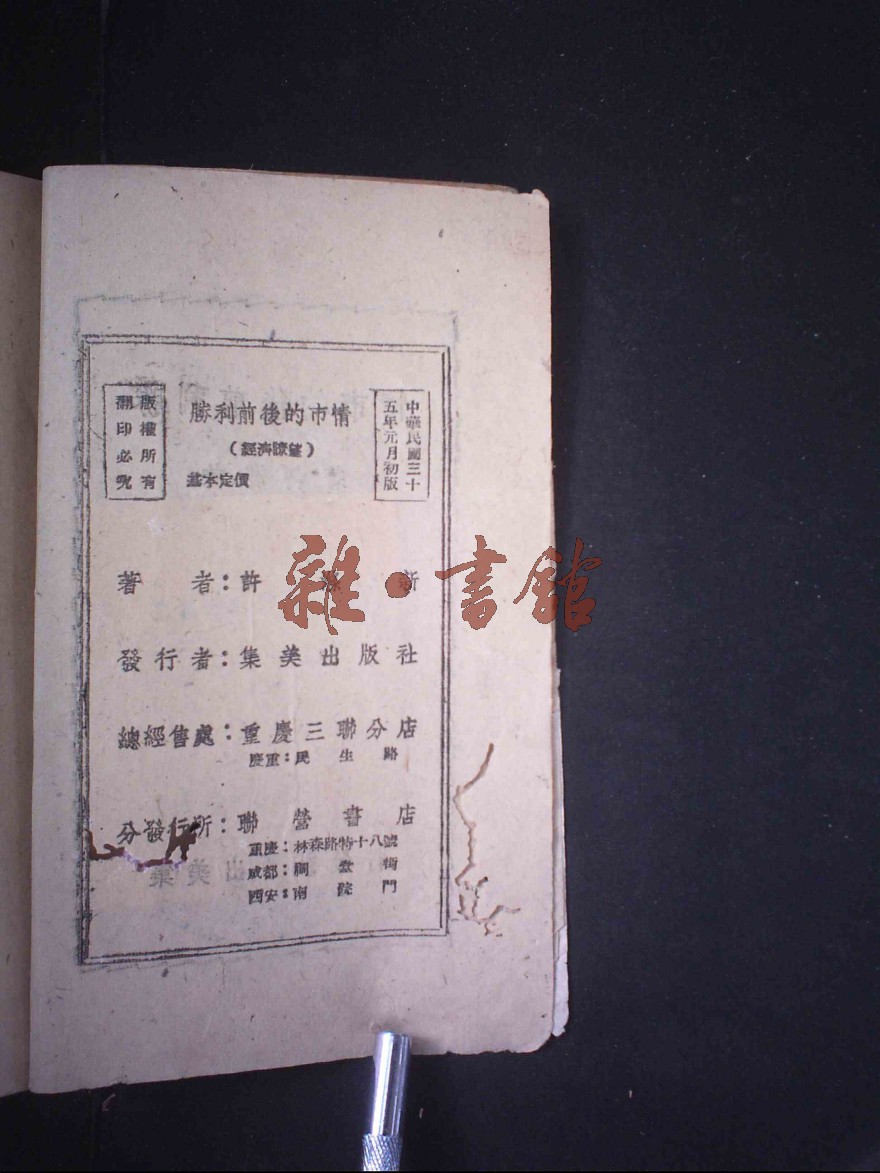 中華民國三十
五年元月初版
勝利前後的市情
(經濟瞭望)
基本定價
版權所有
翻印必究
著者:許 新
發行者:集美出版社
總經售處:重慶三聯分店
慶重:民生路
分發行所:聯營書店
重慶:林森路特十八號
成都:祠堂街
西安:南院門
雜·書館